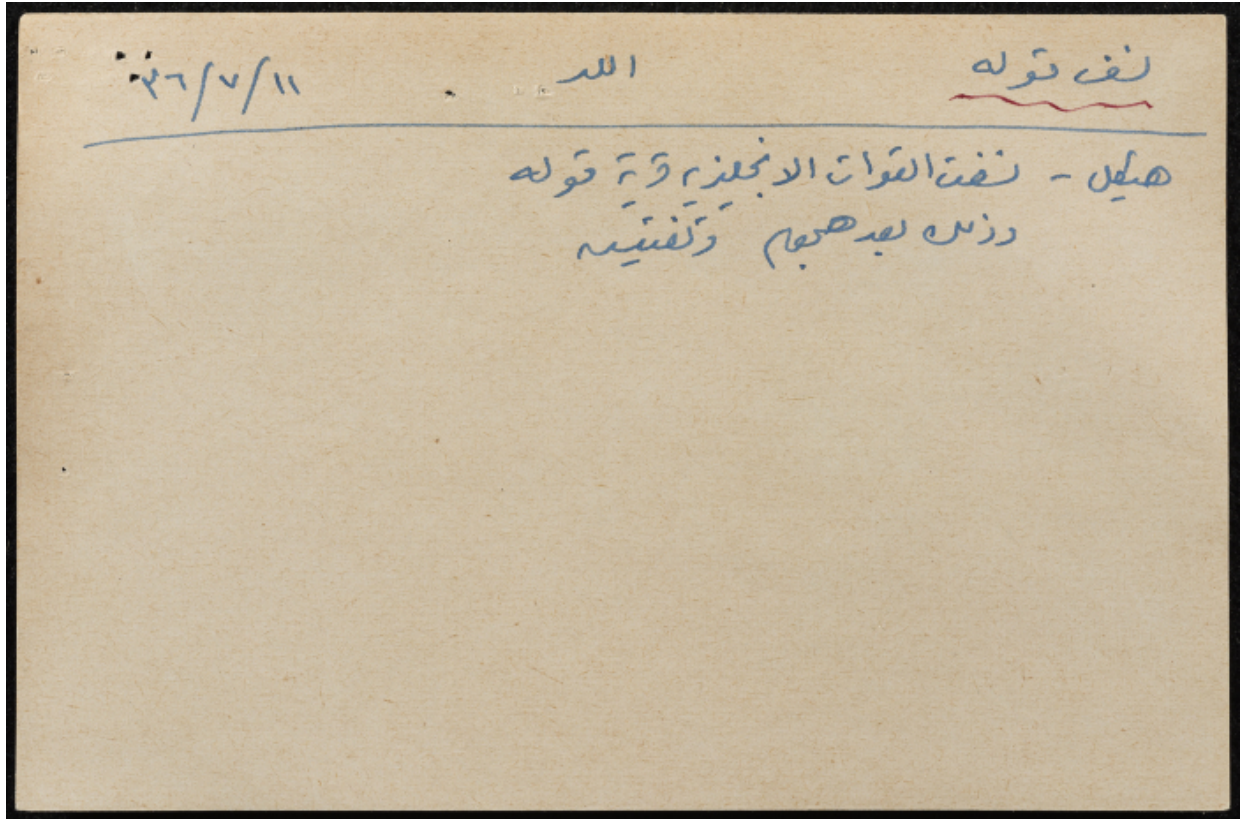 نسف قوله اللد ٣٦/٧/١١
هيكل - نسفت القوات الانجليزيه قرية قوله
وذلك بعد هجوم وتفتيش